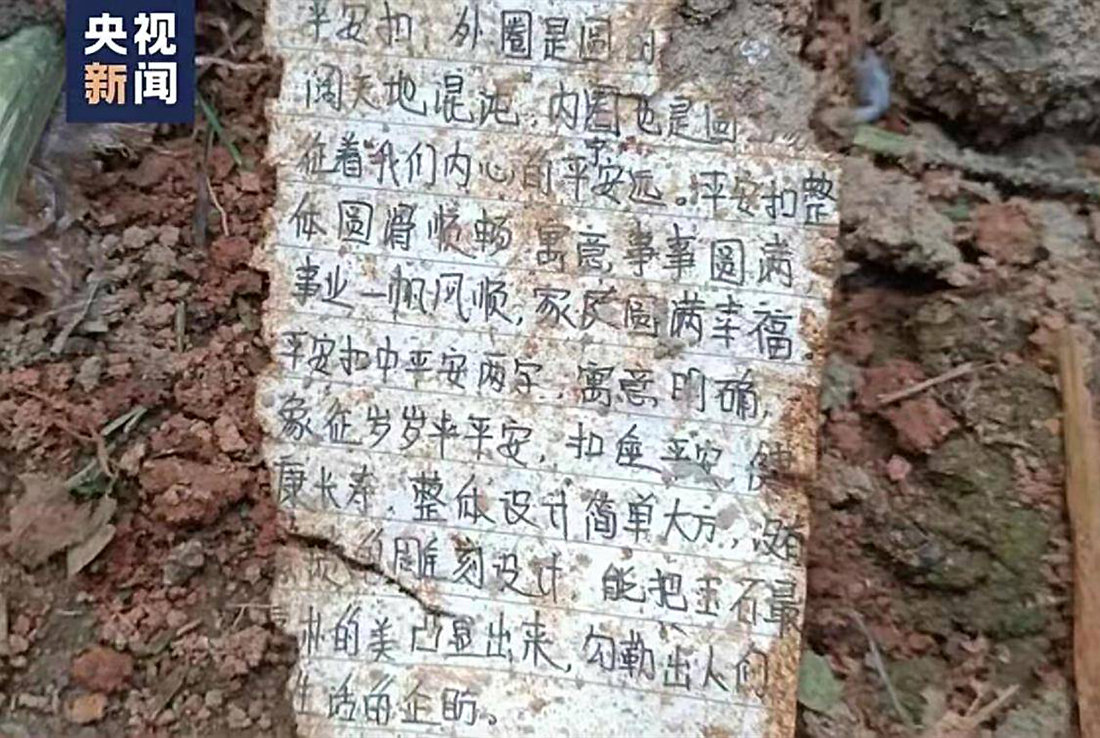 央视
新闻
平安扣 外圈是圆
阔天地混沌,内圈也是圆
征着我们内心的平安宁远。平安扣整
体圆滑顺畅 寓意事事圆满,
事业一帆风顺,家庭圆满幸福。
平安扣中平安两字,寓意明确,
象征岁岁平平安,扣 平安,健
康长寿.整体设计简单大方,没有
雕刻设计 能把玉石最
朴的美凸显出来,勾勒出人们
生活的企盼。